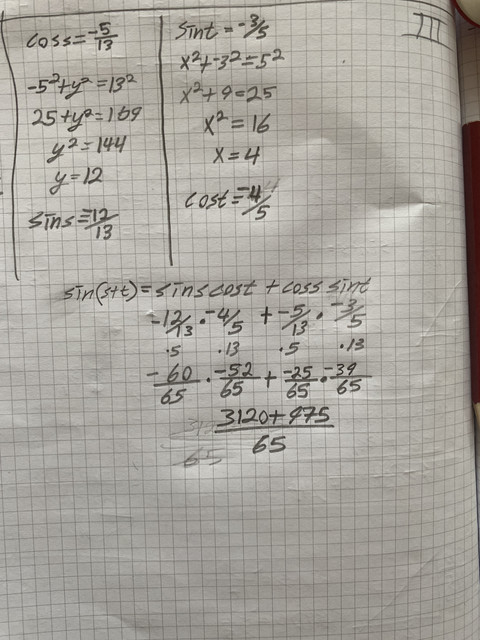 III
coss = -5/13
-5² + y² = 13²
25 + y² = 169
y² = 144
y = 12
sins = -12/13
sint = -3/5
x² + -3² = 5²
x² + 9 = 25
x² = 16
x = 4
cost = -4/5
sin(s+t) = sins cost + coss sint
-12/13 · -4/5 + -5/13 · -3/5
·5 ·13 ·5 ·13
-60/65 · -52/65 + -25/65 · -39/65
3120 + 975 / 65